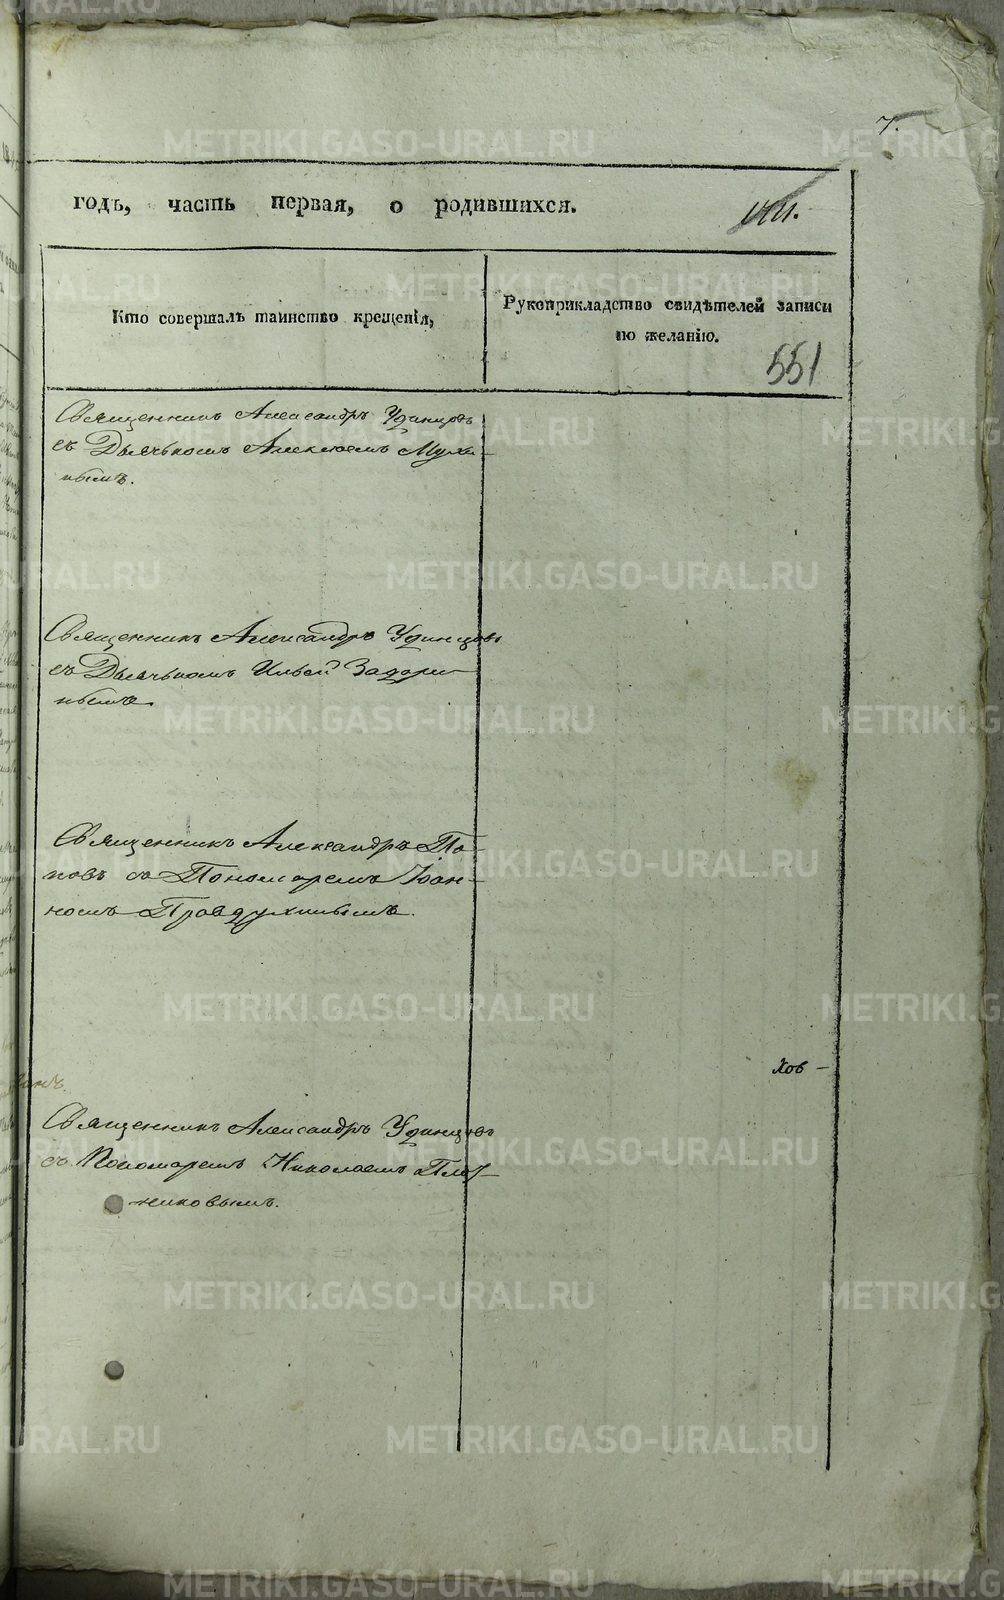 7.
годъ, часть первая, о родившихся.
Кто совершалъ таинство крещенія,
Рукоприкладство свидѣтелей записи
по желанію.
551
Священникъ Александръ Удинцовъ
съ Дьячькомъ Алексѣемъ Мухи-
нымъ.
Священникъ Александръ Удинцовъ
съ Дьячькомъ Ильей Задори-
нымъ.
Священникъ Александръ По-
повъ съ Пономаремъ Іоан-
номъ Правдухинымъ.
Хов -
Священникъ Александръ Удинцовъ
съ Пономаремъ Николаемъ Плот-
никовымъ.
METRIKI.GASO-URAL.RU